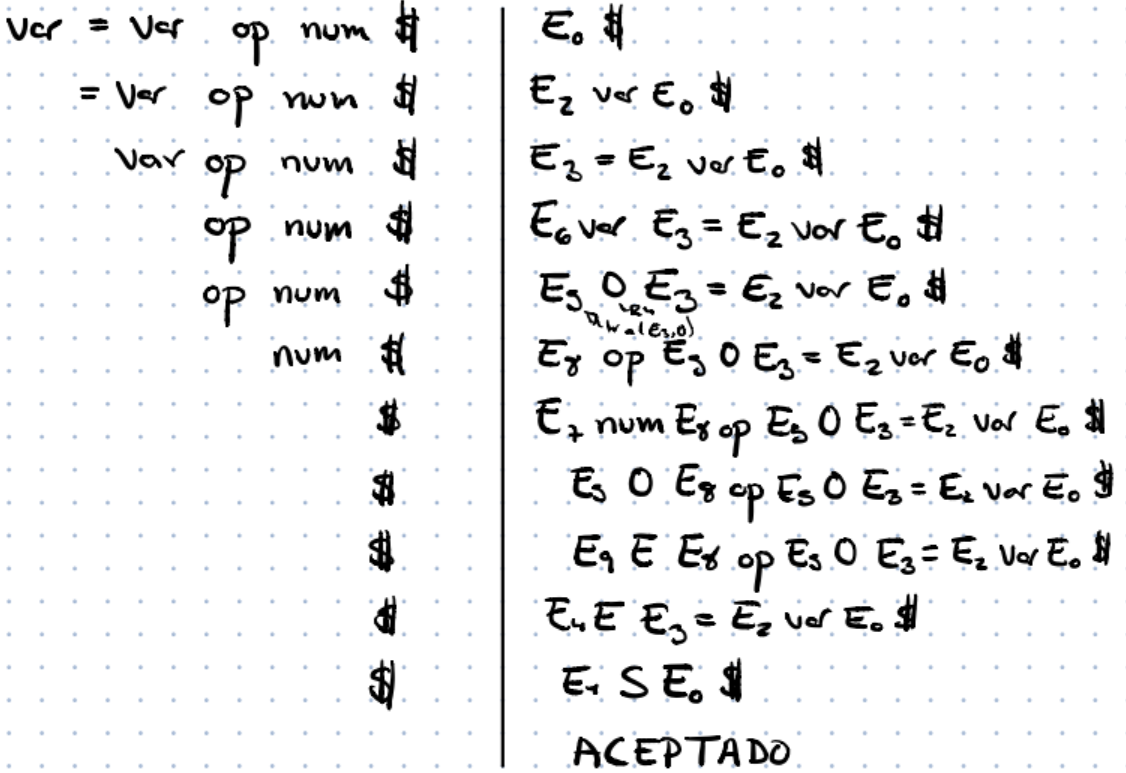 var = var op num $ E₀ $
= var op num $ E₂ var E₀ $
var op num $ E₃ = E₂ var E₀ $
op num $ E₆ var E₃ = E₂ var E₀ $
op num $ E₅ O E₃ = E₂ var E₀ $
num $ E₈ op E₅ O E₃ = E₂ var E₀ $
$ E₇ num E₈ op E₅ O E₃ = E₂ var E₀ $
$ E₅ O E₈ op E₅ O E₃ = E₂ var E₀ $
$ E₉ E E₈ op E₅ O E₃ = E₂ var E₀ $
$ E₄ E E₃ = E₂ var E₀ $
$ E₁ S E₀ $
ACEPTADO